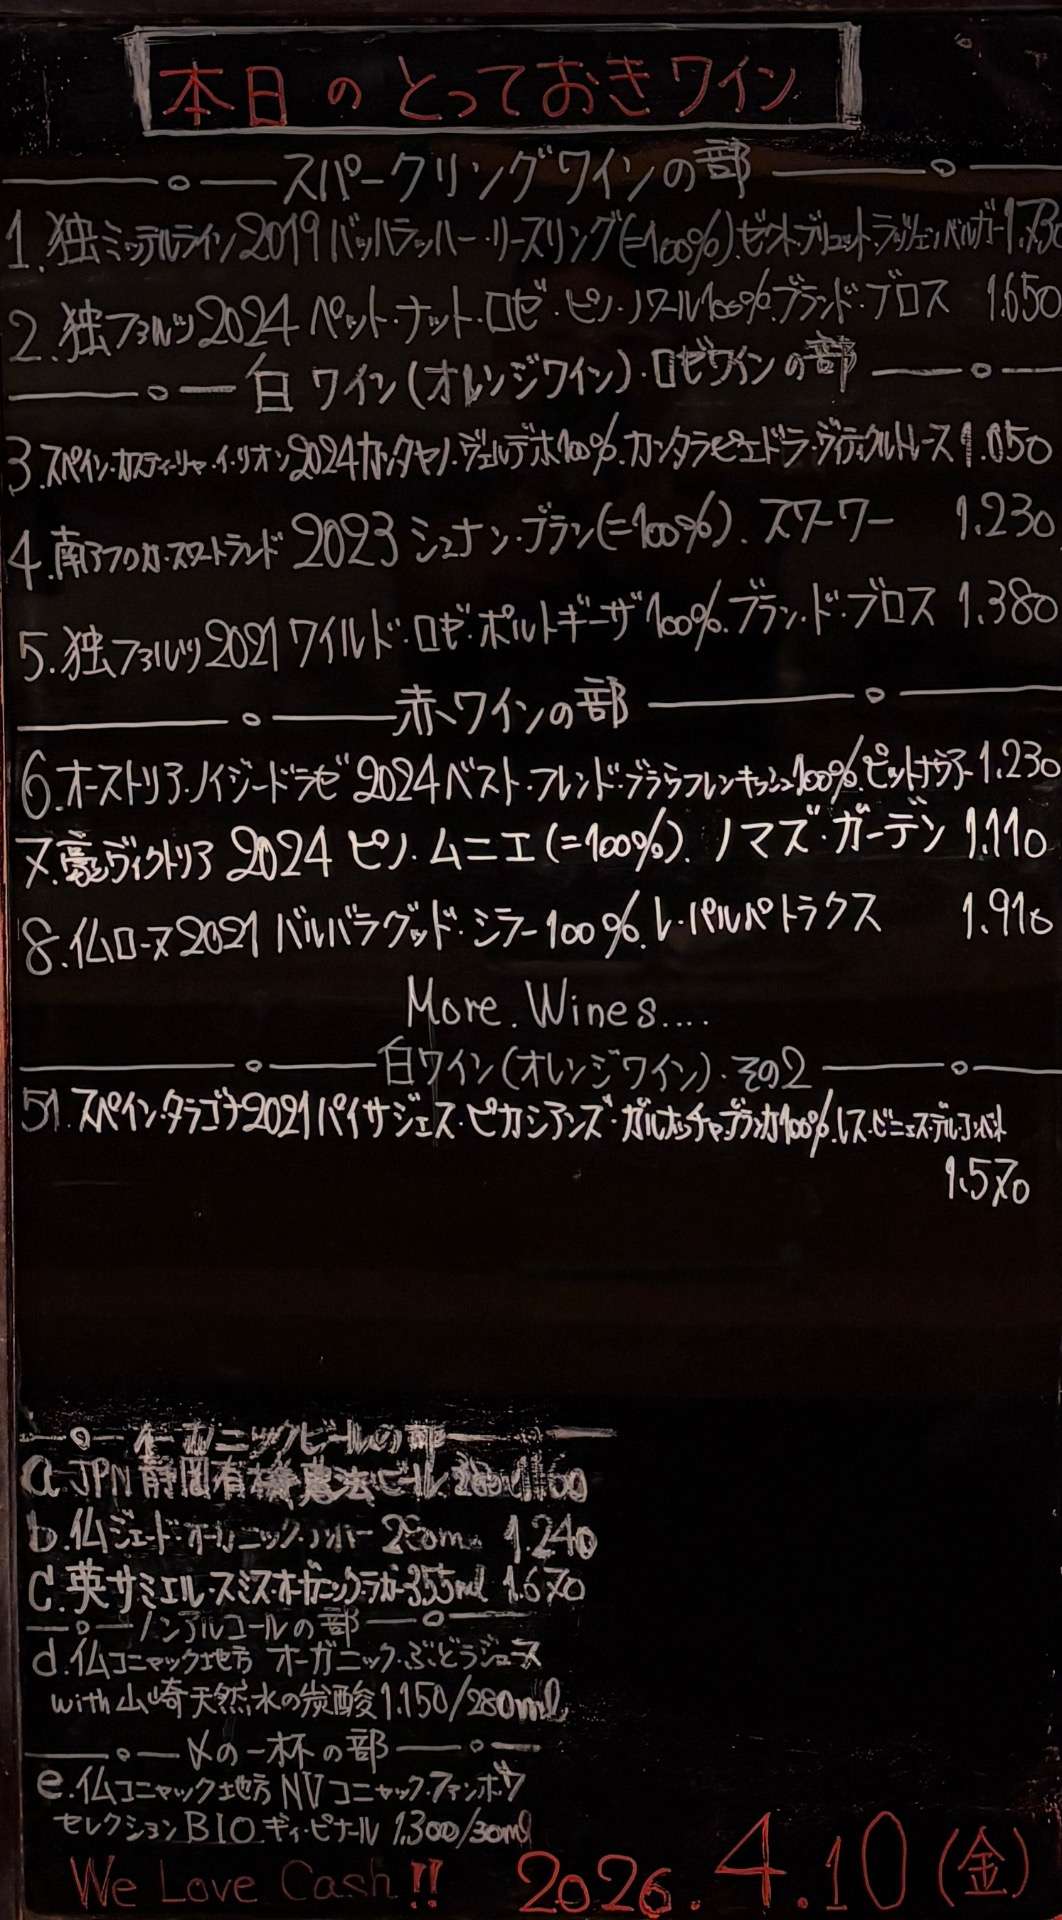 本日のとっておきワイン
スパークリングワインの部
1.独ミッテルライン2019バッハラッハー・リースリング(=100%).ゼクト・ブリュット・ラッツェンベルガー1.730
2.独ファルツ2024 ペット・ナット・ロゼ・ピノ・ノワール100%.ブランド・ブロス 1.650
白ワイン(オレンジワイン)・ロゼワインの部
3.スペイン・カスティーリャ・イ・リオン2024カンタヤノ・ヴェルデホ100%.カンタラピエドラ・ヴィティクルトレース1.050
4.南アフリカ・スワートランド 2023 シュナン・ブラン(=100%).スワーワー 1.230
5.独ファルツ2021 ワイルド・ロゼ・ポルトギーザ100%.ブランド・ブロス 1.380
赤ワインの部
6.オーストリア・ノイジードラゼ2024ベスト・フレンド・ブラウフレンキッシュ100%.ピットナウアー1.230
7.豪・ヴィクトリア 2024 ピノ・ムニエ(=100%).ノマズ・ガーデン 1.110
8.仏ローヌ2021 バルバラグッド・シラー100%.レ・パルペトラクス 1.910
More.Wines....
白ワイン(オレンジワイン)・その2
51.スペイン・タラゴナ2021パイサジェス・ピカシアンズ・ガルナッチャ・ブランカ100%.レス・ビニェス・デル・コンベント
1.570
オーガニックビールの部
a.JPN静岡有機農法ビール 1.100
b.仏ジェード・オーガニック・ 280ml 1.240
c.英サミエル・スミス・オーガニックラガー355ml 1.670
ノンアルコールの部
d.仏コニャック地方 オーガニック・ぶどうジュース
with山崎天然水の炭酸 1.150/280ml
〆の一杯の部
e.仏コニャック地方 NV コニャック・ファンボワ
セレクションBIO ギィ・ピナール 1.300/30ml
We Love Cash!! 2026.4.10(金)